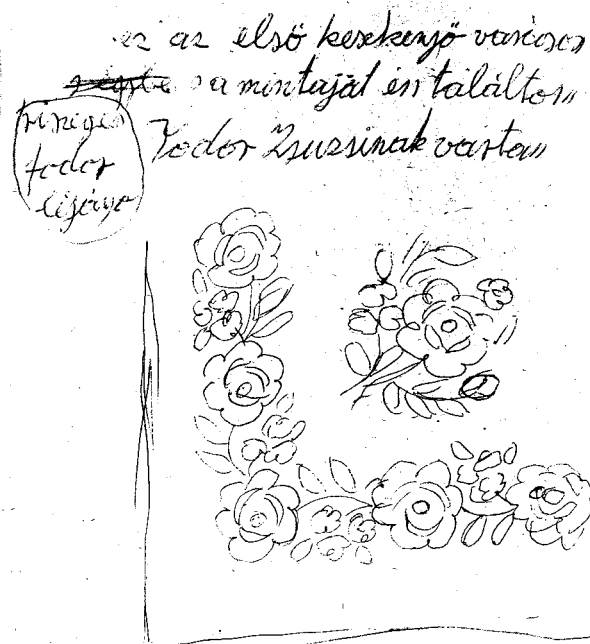 ez az első keszkenyő varásos
a mintaját én találtom
Fodor Zsuzsinak vartam
fodor